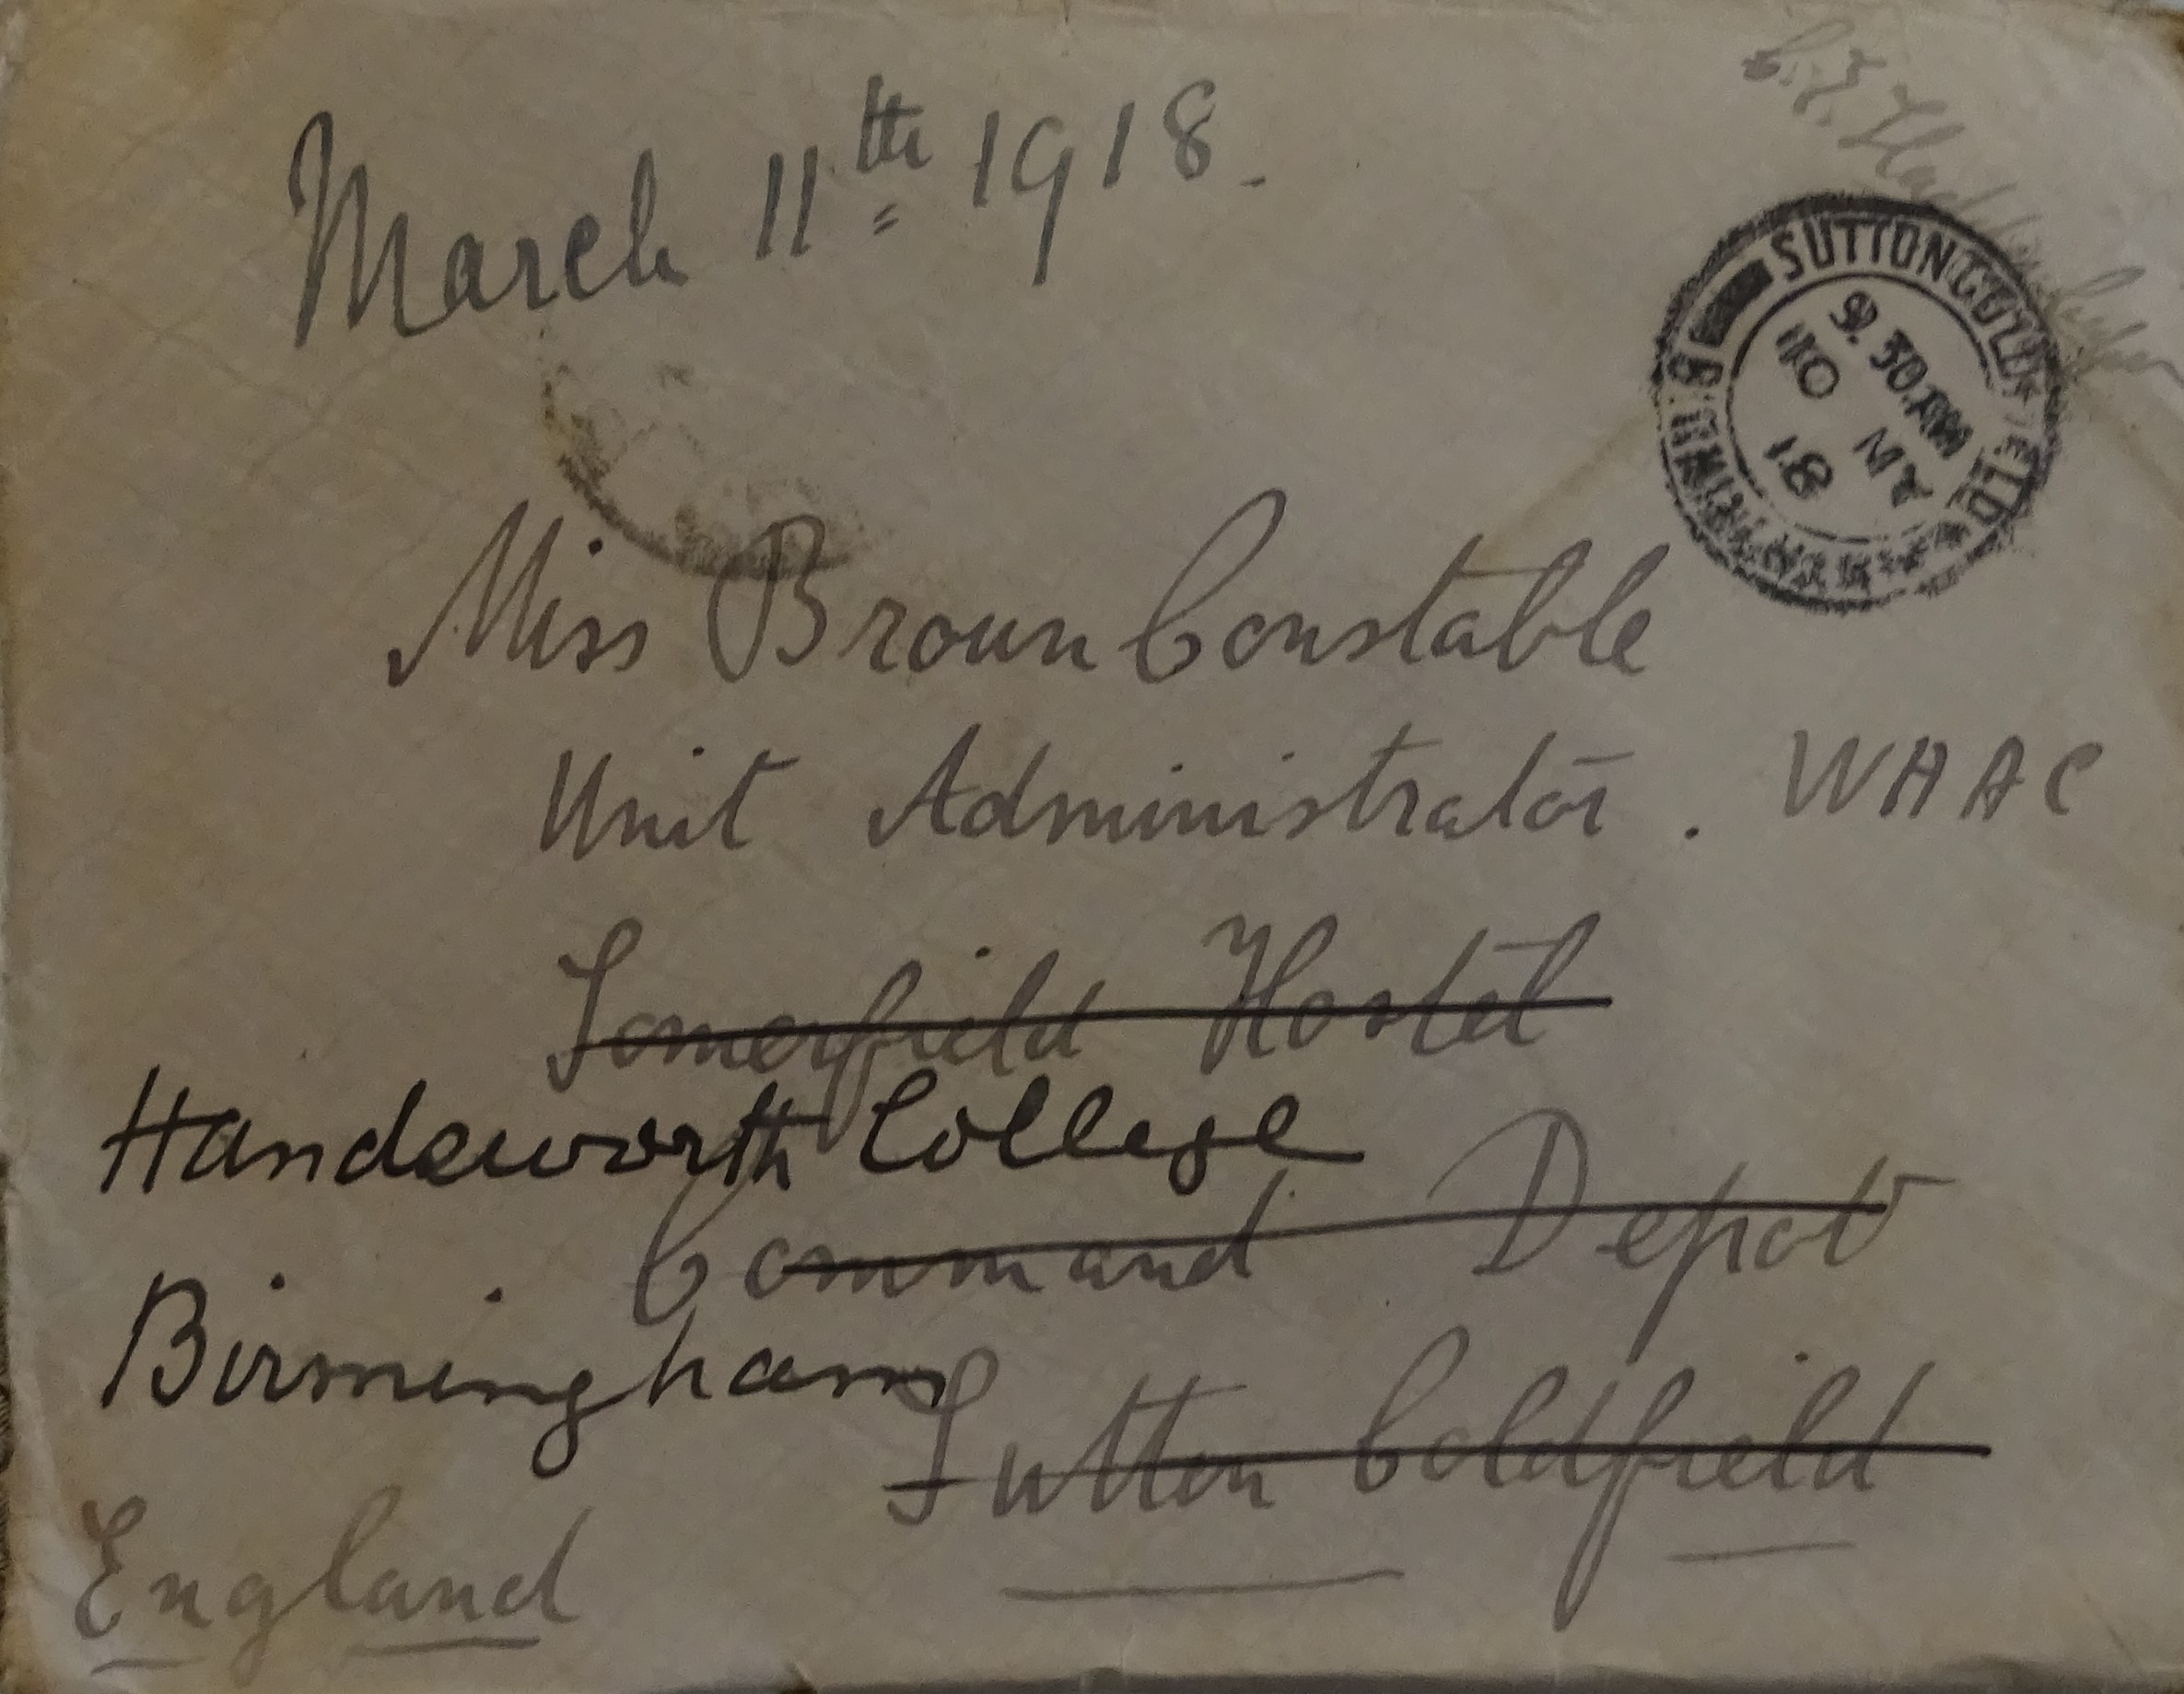 March 11th 1918.
SUTTON COLDFIELD
BIRMINGHAM
9.30 AM
10 MY
18
Miss Broun Constable
Unit Administrator. WAAC
Somerfield Hostel
Handsworth College
Command Depot
Birmingham
Sutton Coldfield
England